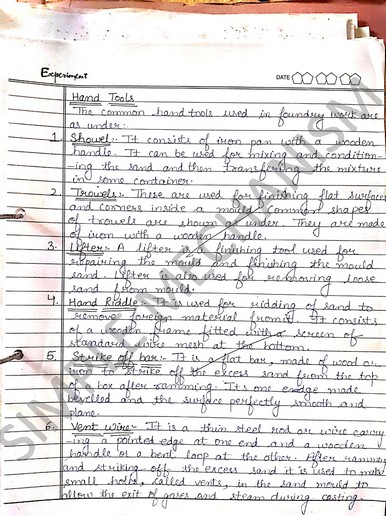 Experiment
DATE
Hand Tools
The common hand tools used in foundry work are
as under:
1. Showel:- It consists of iron pan with a wooden
handle. It can be used for mixing and condition-
-ing the sand and then transferring the mixture
in some container.
2. Trowels:- These are used for finishing flat surfaces
and corners inside a mould. Common shapes
of trowels are shown as under. They are made
of iron with a wooden handle.
3. Lifter:- A lifter is a finishing tool used for
repairing the mould and finishing the mould
sand. Lifter is also used for removing loose
sand from mould.
4. Hand Riddle:- It is used for ridding of sand to
remove foreign material from it. It consists
of a wooden frame fitted with a screen of
standard wire mesh at the bottom.
5. Strike off bar:- It is a flat bar, made of wood or
iron to strike off the excess sand from the top
of a box after ramming. Its one endge made
bevelled and the surface perfectly smooth and
plane.
6. Vent wire:- It is a thin steel rod or wire carry-
-ing a pointed edge at one end and a wooden
handle or a bent loop at the other. After ramming
and striking off the excess sand it is used to make
small holes, called vents, in the sand mould to
allow the exit of gases and steam during casting.
SIMPLE MECHANISM